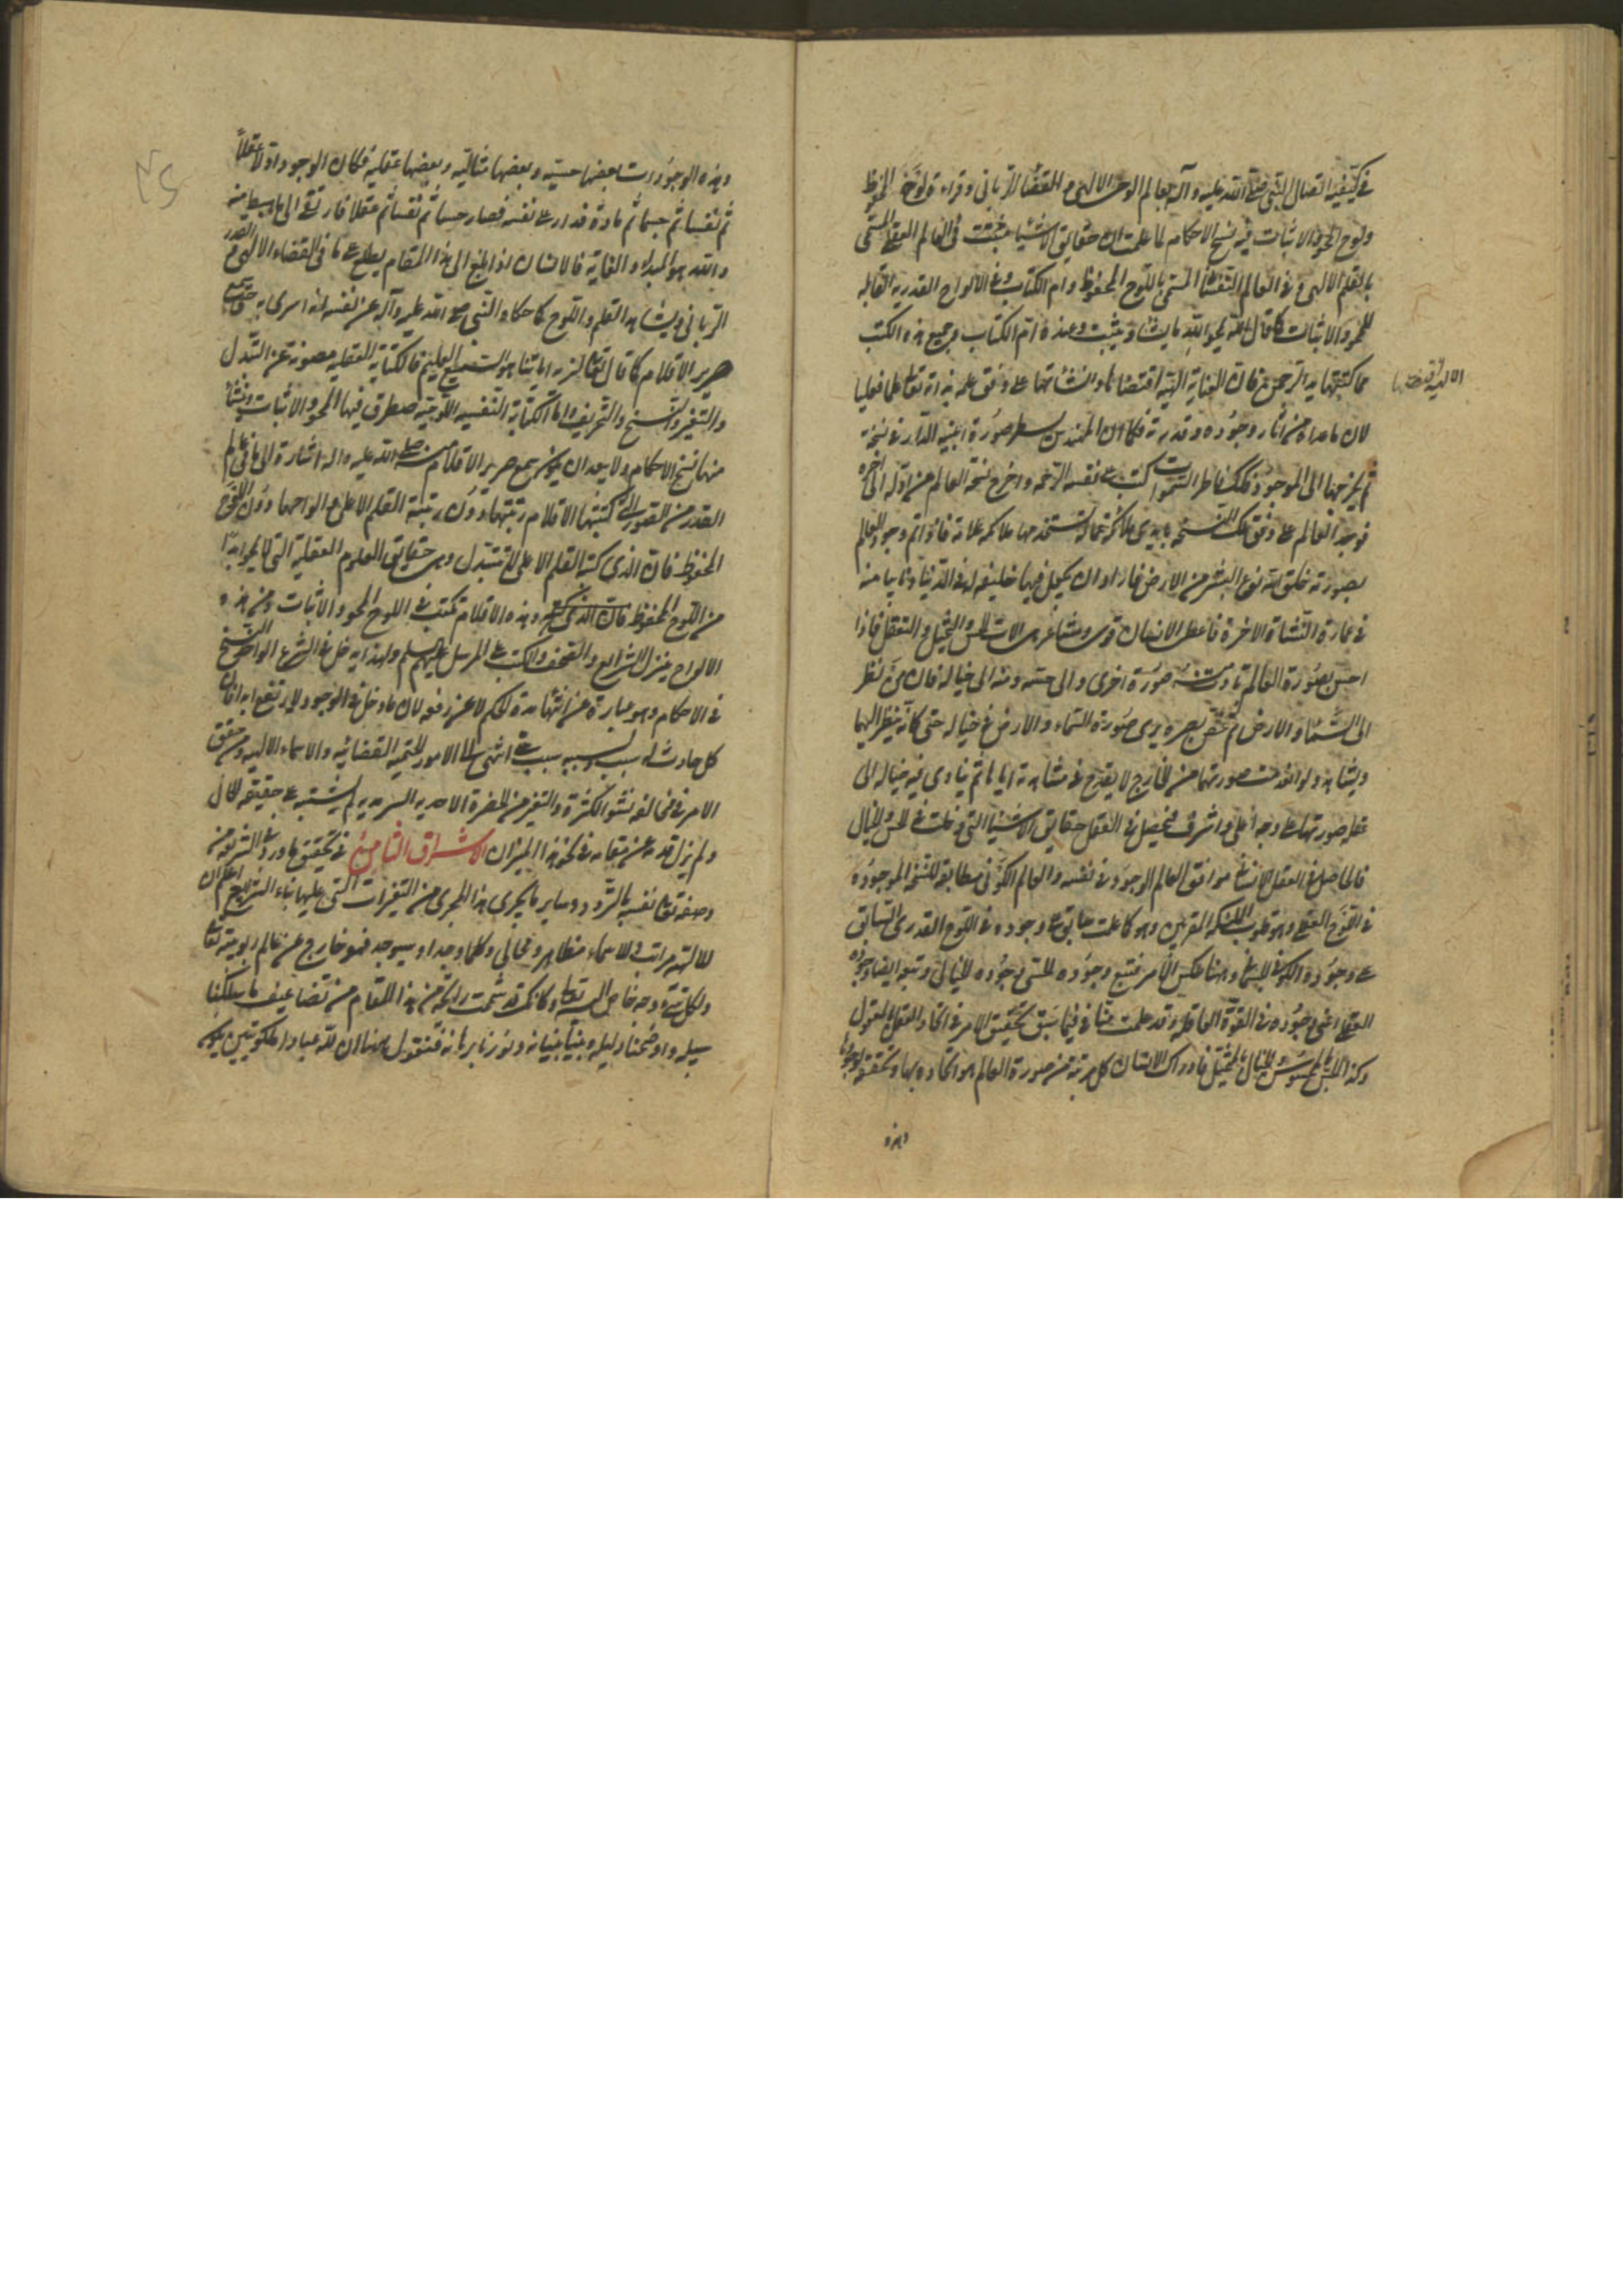 في كيفية اتصال النبي صلى الله عليه وآله بعالم الوحي الالهي والقضاء الرباني وقراءة لوح المحفوظ
ولوح المحو والاثبات فيه نسخ الاحكام لما علمت ان حقايق الاشياء مثبتة في العالم العقلي المسمى
بالقلم الالهي وفي العالم النفساني المسمى باللوح المحفوظ وام الكتاب وفي الالواح القدرية القابلة
للمحو والاثبات كما قال الله يمحو الله ما يشاء ويثبت وعنده ام الكتاب وجميع هذه الكتب
مما كتبتها يد الرحمن فان العناية الهية اقتضاها وانشأتها على وفق علمه بذاته تعالى علما فعليا
الالهية
لان ما عداه من آثار وجوده وقدرته فكما ان المهندس يسطر صورة ابنية الدار في نسخة
ثم يخرجها الى الموجود فكذلك فاطر السموات كتب على نفسه الرحمة واخرج نسخة العالم من اوله الى آخره
فوجد العالم على وفق تلك النسخة بايدي ملائكة عمالة تستخدمها ملائكة علامة فاذا تم وجود العالم
بصورته خلق الله نوع البشر من الارض فاراد ان يجعل فيها خليفة له في الدنيا ونايبا منه
في عمارة النشاة الاخرة فاعطى الانسان قوى ومشاعر هي الات الحس والتخيل والتعقل فاذا
احس بصورة العالم تادت منه صورة اخرى والى حسه ومنه الى خياله فان من نظر
الى السماء والارض ثم غض بصره يرى صورة السماء والارض في خياله حتى كانه ينظر اليهما
ويشاهد ولو انعدمت صورتهما من الخارج لا يقدح في مشاهدة اياها ثم يتادى فيه خياله الى
عقله صورتها على وجه أعلى واشرف فيحصل في العقل حقايق الاشياء التي دخلت في الحس والخيال
فالحاصل في العقل الانساني موافق للعالم الموجود في نفسه والعالم الكوني مطابق للنسخة الموجودة
في اللوح العقلي وهو قلوب الملائكة المقربين وهو كما علمت سابق على وجوده في اللوح القدري السابق
على وجوده الكوني الجسماني وههنا عكس الامر فتتبع وجوده الحسي وجوده الخيالي وتبعه ايضا وجوده
العقلي اعني وجوده في القوة العاقلة وقد علمت منا فيما سبق تحقيق الامر في اتحاد العقل بالمعقول
وكذا الحس بالمحسوس والخيال بالمتخيل فادراك الانسان كل مرتبة من صورة العالم هو اتحاده بها وتحققه بوجودها
وهذه
وهذه الوجودات بعضها حسية وبعضها مثالية وبعضها عقلية فكان الوجود اولا عقلاً
ثم نفسا ثم جسما ثم مادة فدار على نفسه فصار حسا ثم نفسا ثم عقلا فارتقى الى ما هبط منه
والله هو المبداء والغاية فالانسان اذا بلغ الى هذا المقام يطلع على ما في القضاء الالهي والقدر
الرباني ويشاهد القلم واللوح كما حكاه النبي صلى الله عليه وآله عن نفسه انه اسرى به حتى سمع
صرير الاقلام كما قال تعالى لنريه اياتنا هو السميع العليم فالكتابة العقلية مصونة عن التبدل
والتغير والنسخ والتحريف واما الكتابة النفسية اللوحية فيتطرق فيها المحو والاثبات وينشأ
منها نسخ الاحكام ولا يبعد ان يكون سمع صرير الاقلام منه صلى الله عليه واله اشارة الى ما في عالم
القدر من الصور التي كتبتها الاقلام رتبتها دون رتبة القلم الاعلى والواحها دون اللوح
المحفوظ فان الذي كتبه القلم الاعلى لا يتبدل وهي حقايق العلوم العقلية التي لا يمحو ابدا
من اللوح المحفوظ فان الذي كتبه وهذه الاقلام تكتب في اللوح المحو والاثبات ومن هذه
الالواح ينزل الشرايع والصحف والكتب على الرسل عليهم السلم ولهذا يدخل في الشرع الواحد النسخ
في الاحكام وهو عبارة عن انتهاء مدة الحكم لا عن رفعه لان ما دخل في الوجود لا يرتفع ابدا فان
كل حادث له سبب ولسببه سبب حتى انتهى الى الامور الحتمية القضائية والاسماء الالهية ومن حقق
الامر في مخالفه نشو الكثرة والتغير من الحضرة الاحدية السرمدية لم يشتبه عليه حقيقة الحال
ولم يزل قدمه عن مقامه في نحو هذا الميزان الاشراق الثامن في تحقيق ما ورد في الشريعة من
وصفه تعالى نفسه بالتردد وساير ما يجري هذا المجرى من التغيرات التي عليها بناء الشرايع اعلم ان
للالهية مراتب وللاسماء مظاهر ومجالي وكلما وجد او سيوجد فهو خارج عن عالم ربوبيته تعالى
ولكل شيء وجه خاص اليه تعالى وكانك قد شممت رايحة من هذا المقام من تضاعيف ما سلكنا
سبيله واوضحنا دليله وبينا بنيانه ونورنا برهانه فنقول ههنا ان لله عبادا ملكوتيين يكون